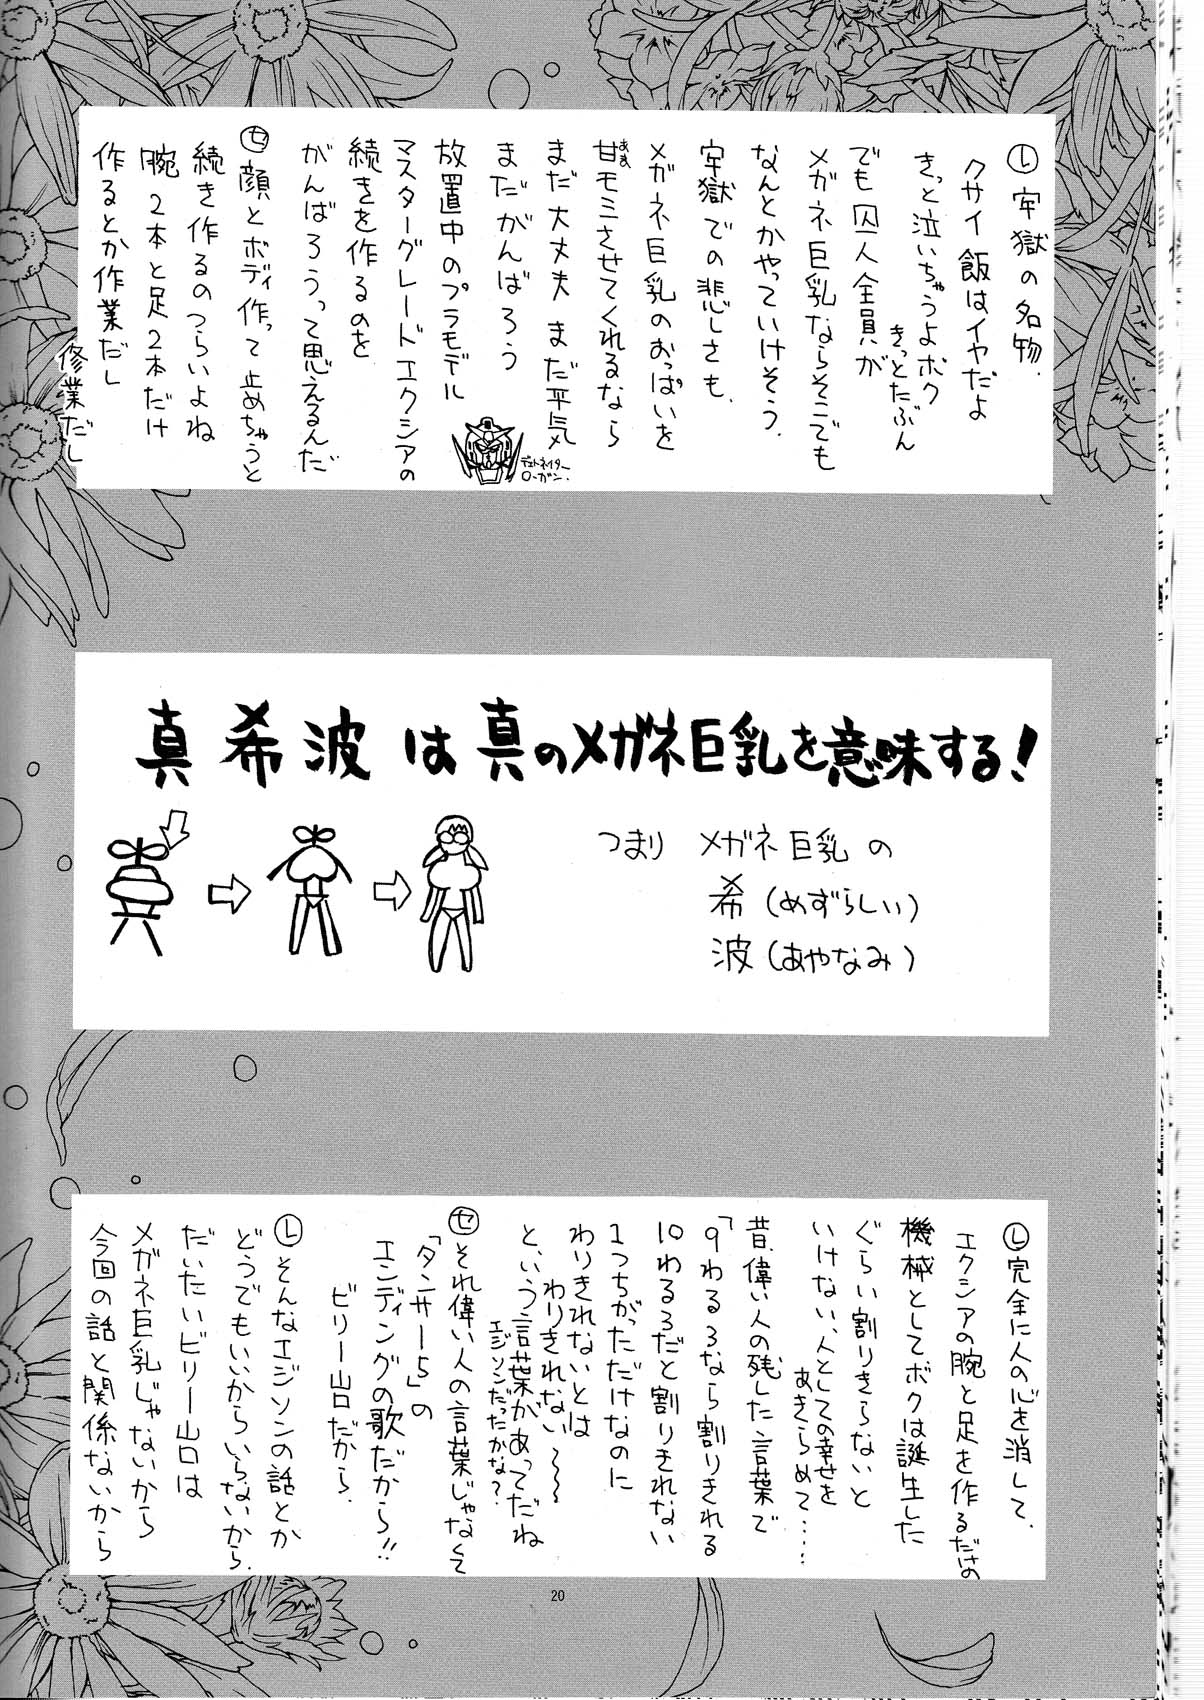 レ 牢獄の名物
クサイ飯はイヤだよ
きっと泣いちゃうよボク
きっとたぶん
でも囚人全員が
メガネ巨乳ならそこでも
なんとかやっていけそう。
牢獄での悲しさも、
メガネ巨乳のおっぱいを
甘モミさせてくれるなら
あま
まだ大丈夫 まだ平気
まだがんばろう
放置中のプラモデル
マスターグレードエクシアの
続きを作るのを
がんばろうって思えるんだ
デュトネイター
ローガン.
セ 顔とボディ作って止めちゃうと
続き作るのつらいよね
腕2本と足2本だけ
作るとか作業だし
修業だし
真希波は真のメガネ巨乳を意味する!
つまり メガネ巨乳の
希(めずらしい)
波(あやなみ)
レ 完全に人の心を消して、
エクシアの腕と足を作るだけの
機械としてボクは誕生した
ぐらい割りきらないと
いけない、人としての幸せを
あきらめて....
昔、偉い人の残した言葉で
「9わる3なら割りきれる
10わる3だと割りきれない
1つちがっただけなのに
わりきれないとは
わりきれない〜〜
という言葉があってだね
エジソンだったかな?
セ それ偉い人の言葉じゃなくて
「タンサー5」の
エンディングの歌だから!!
ビリー山口だから、
レ そんなエジソンの話とか
どうでもいいからいらないから、
だいたいビリー山口は
メガネ巨乳じゃないから
今回の話と関係ないから
20